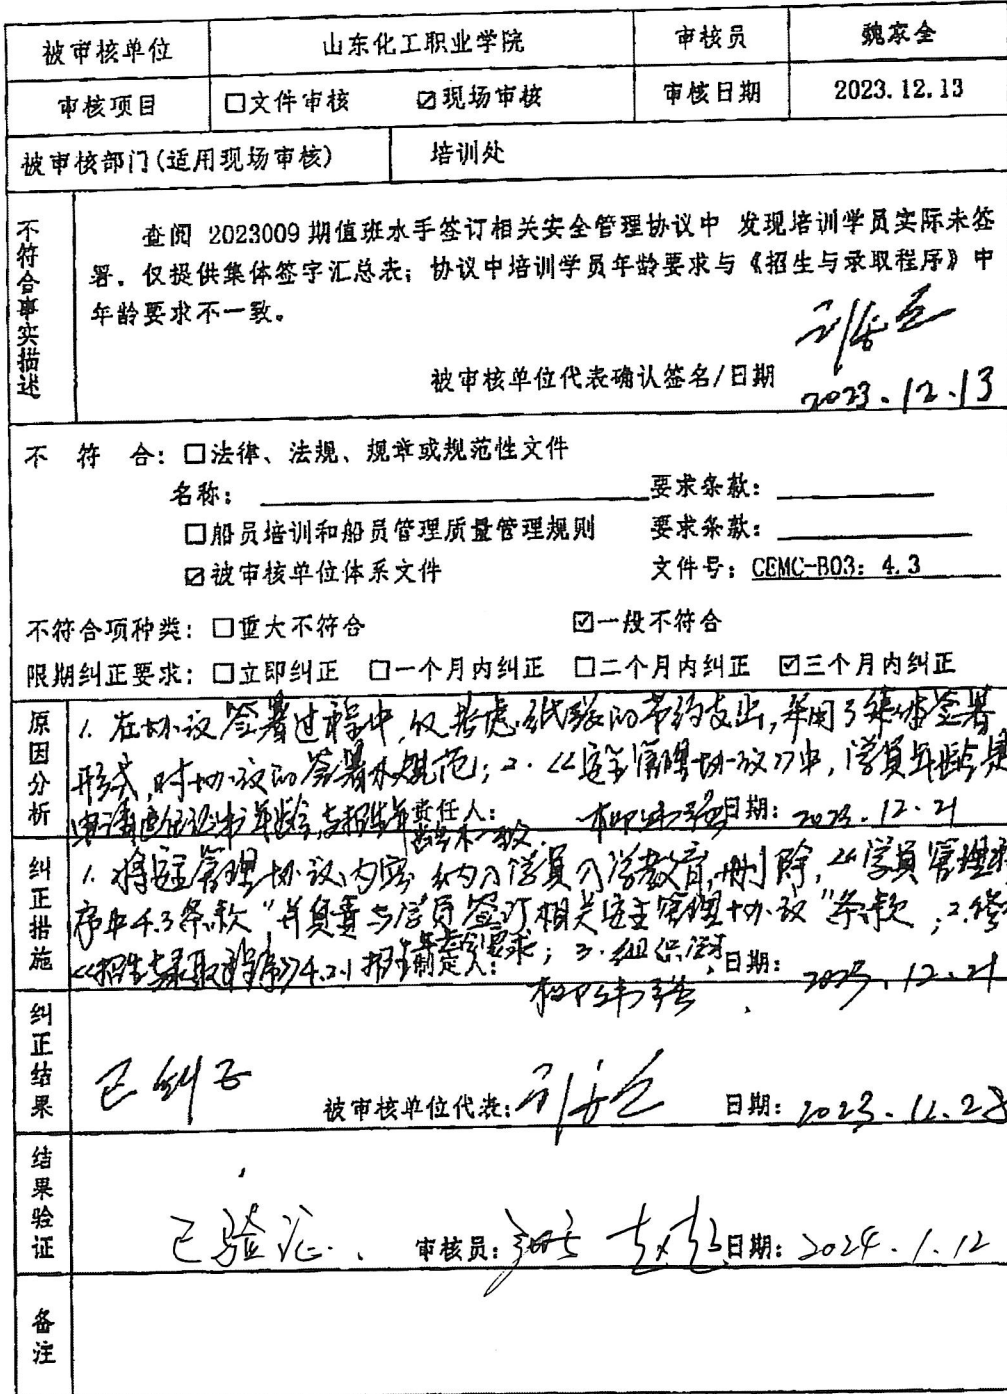 被审核单位 山东化工职业学院 审核员 魏家全
审核项目 □文件审核 ☑现场审核 审核日期 2023.12.13
被审核部门(适用现场审核) 培训处
不符合事实描述
查阅 2023009 期值班水手签订相关安全管理协议中 发现培训学员实际未签
署，仅提供集体签字汇总表；协议中培训学员年龄要求与《招生与录取程序》中
年龄要求不一致。
被审核单位代表确认签名/日期
2023.12.13
不 符 合：□法律、法规、规章或规范性文件
名称： 要求条款：
□船员培训和船员管理质量管理规则 要求条款：
☑被审核单位体系文件 文件号：CEMC-B03: 4.3
不符合项种类：□重大不符合 ☑一般不符合
限期纠正要求：□立即纠正 □一个月内纠正 □二个月内纠正 ☑三个月内纠正
原因分析
1. 在协议签署过程中，仅考虑纸张的节约支出，采用了集体签署
形式，对协议的签署不规范；2.《安全管理协议》中，学员年龄是
申请适任证书年龄，与招生年龄不一致.
责任人： 日期：2023.12.21
纠正措施
1. 将安全管理协议内容纳入学员入学教育，删除《学员管理程
序中4.3条款“并负责与学员签订相关安全管理协议”条款；2.修
《招生与录取程序》4.2.1招生年龄要求；3.组织
制定人： 日期：
2023.12.21
纠正结果
已纠正
被审核单位代表： 日期：2023.12.28
结果验证
已验证.
审核员： 日期：2024.1.12
备注